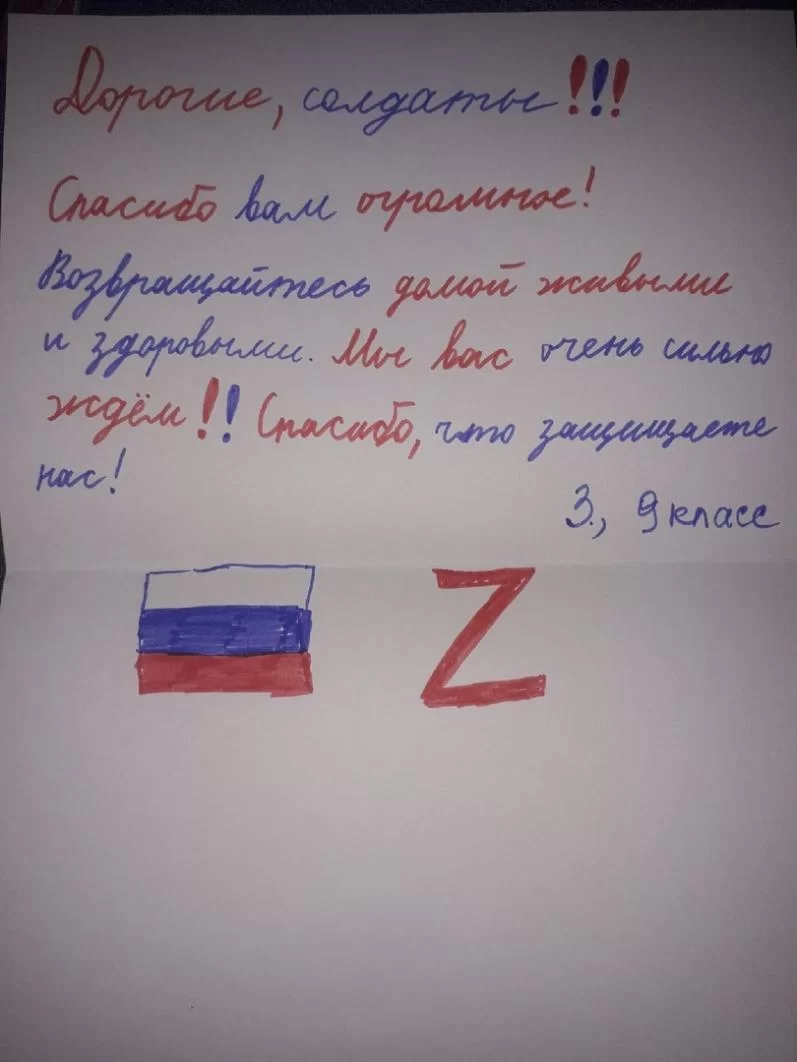 Дорогие, солдаты!!!
Спасибо вам огромное!
Возвращайтесь домой живыми
и здоровыми. Мы вас очень сильно
ждём!! Спасибо, что защищаете
нас!
З., 9 класс
Z